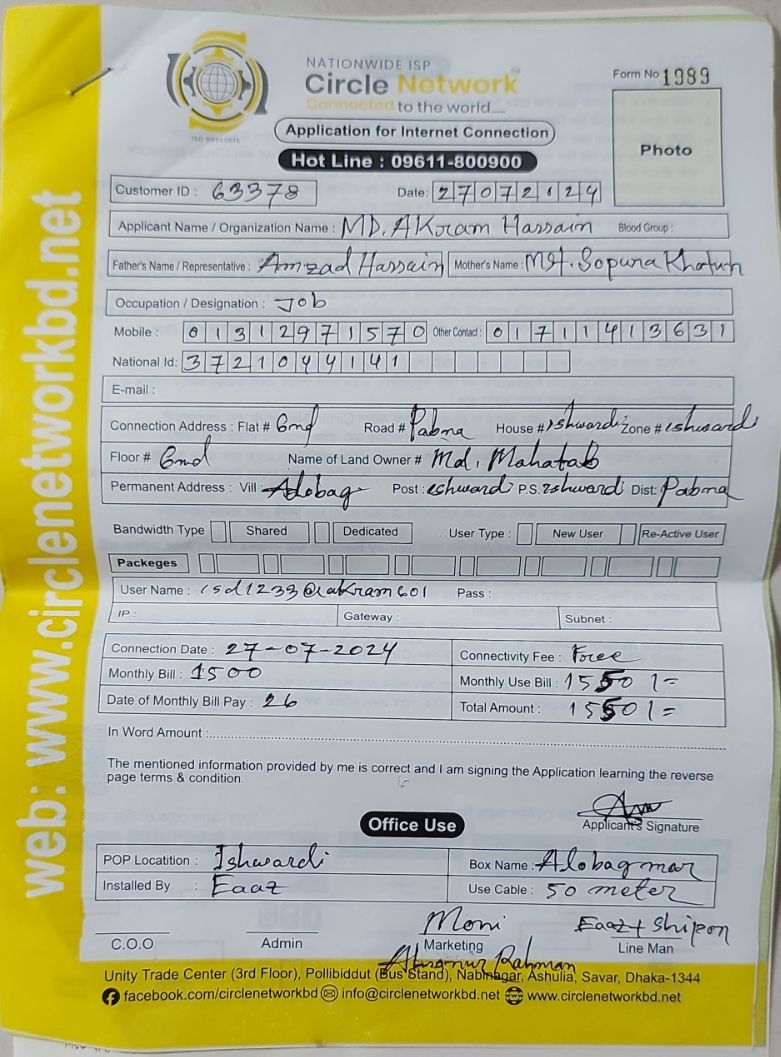 NATIONWIDE ISP
Circle Network
Connected to the world.....
Form No 1989
Application for Internet Connection
Hot Line : 09611-800900
Photo
Customer ID : 63378 Date: 27072124
Applicant Name / Organization Name : MD. AKram Hassain Blood Group :
Father's Name / Representative : Amzad Hassain Mother's Name : Mst. Sopura Khatun
Occupation / Designation : Job
Mobile : 01312971570 Other Contact : 01711413631
National Id: 3721044141
E-mail :
Connection Address : Flat # Gmd Road # Pabna House # ishwardi Zone # ishwardi
Floor # Gmd Name of Land Owner # Md. Mahatab
Permanent Address : Vill Alobag Post : ishwardi P.S. ishwardi Dist: Pabna
Bandwidth Type Shared Dedicated User Type : New User Re-Active User
Packeges
User Name : isd1233@akram601 Pass :
IP : Gateway : Subnet :
Connection Date : 27-07-2024 Connectivity Fee : Free
Monthly Bill : 1500 Monthly Use Bill : 1550/=
Date of Monthly Bill Pay : 26 Total Amount : 1550/=
In Word Amount :
The mentioned information provided by me is correct and I am signing the Application learning the reverse
page terms & condition.
Applicant's Signature
Office Use
POP Locatition : Ishwardi Box Name : Alobag mor
Installed By : Eaaz Use Cable : 50 meter
Moni Eaaz + Shipon
C.O.O Admin Marketing Line Man
Rahman
Unity Trade Center (3rd Floor), Pollibiddut (Bus Stand), Nabinagar, Ashulia, Savar, Dhaka-1344
facebook.com/circlenetworkbd info@circlenetworkbd.net www.circlenetworkbd.net
web: www.circlenetworkbd.net